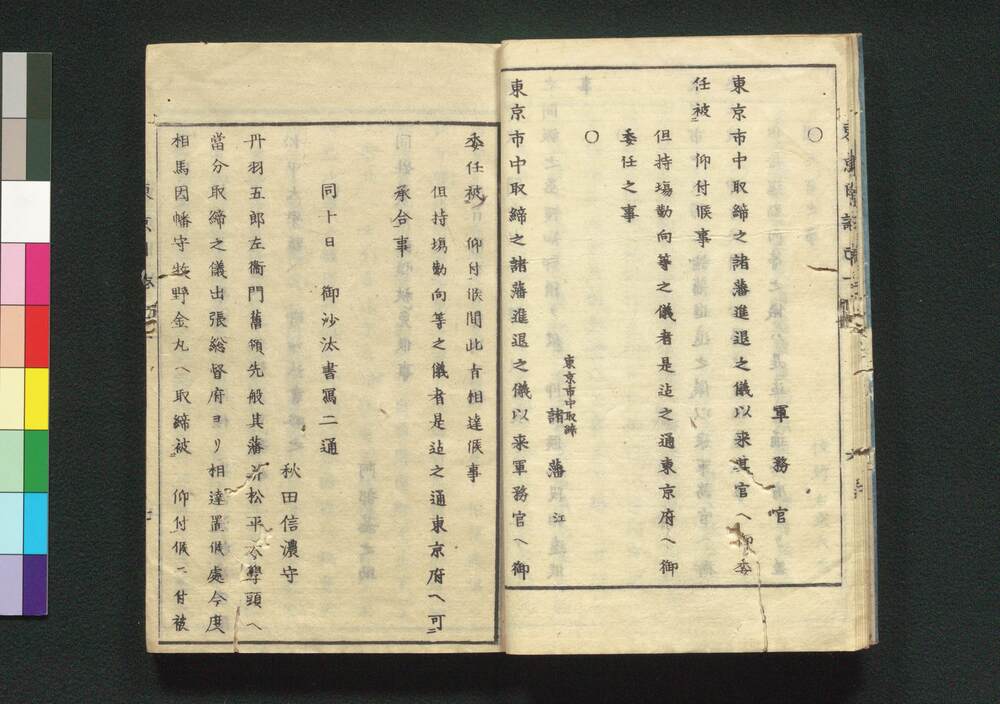 〇
軍務官
東京市中取締之諸藩進退之儀以来其官ヘ御委
任被 仰付候事
但持場勤向等之儀者是迠之通東京府ヘ御
委任之事
〇
東京市中取締
諸藩江
東京市中取締之諸藩進退之儀以来軍務官ヘ御
委任被 仰付候間此旨相達候事
但持場勤向等之儀者是迠之通東京府ヘ可
承合事
同十日御沙汰書寫二通
秋田信濃守
丹羽五郎左衞門舊領先般其藩并松平大學頭ヘ
當分取締之儀出張総督府ヨリ相達置候處今度
相馬因幡守牧野金丸ヘ取締被 仰付候ニ付被